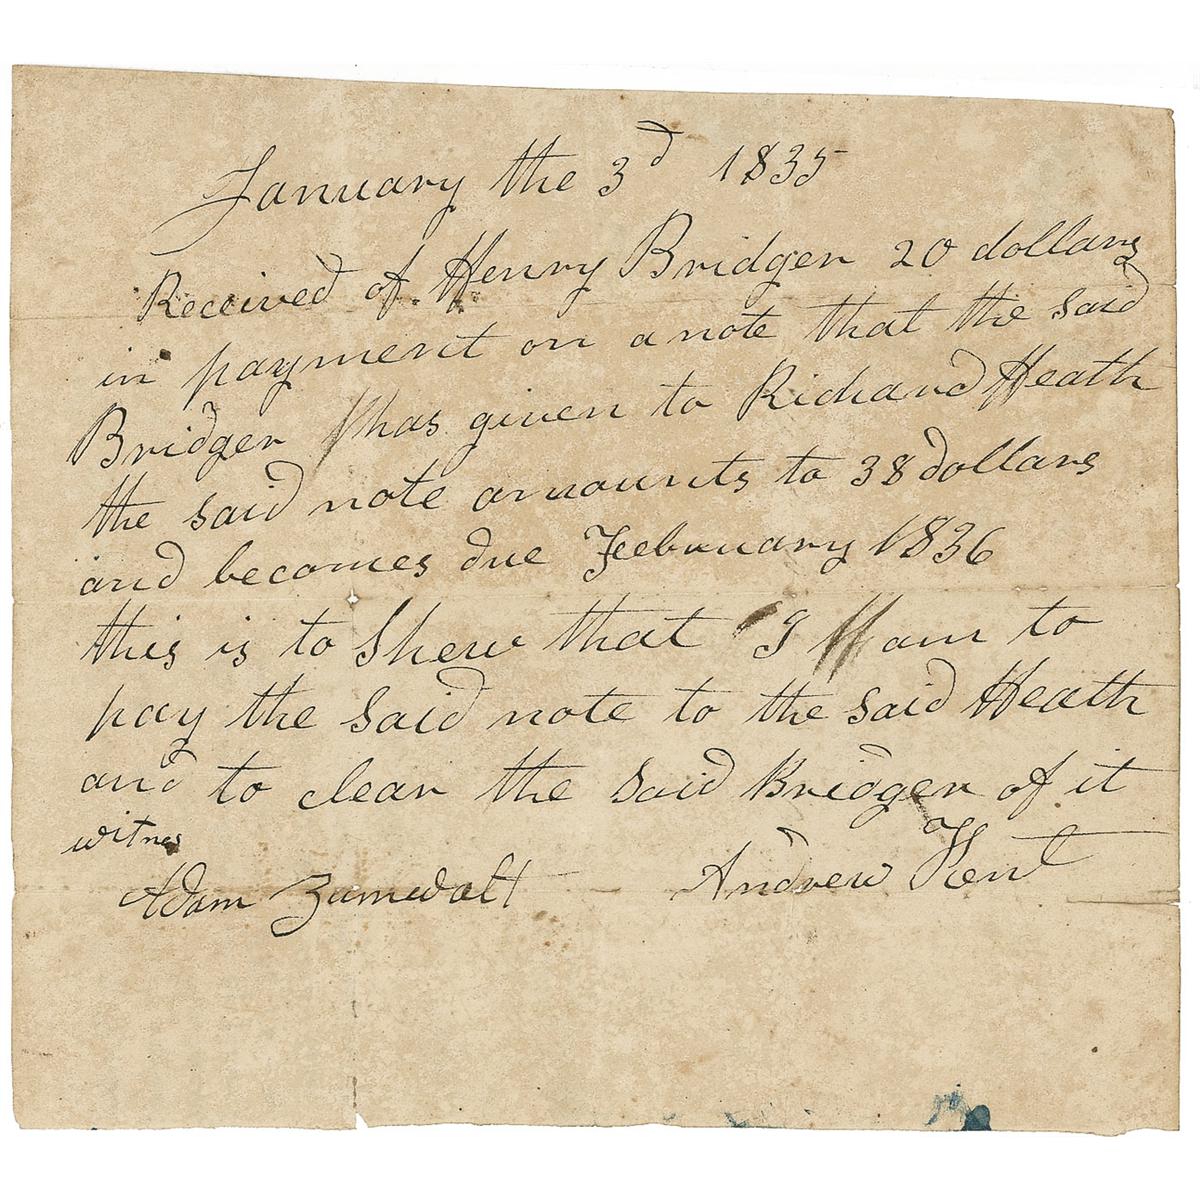 January the 3d 1835
Received of Henry Bridger 20 dollars
in payment on a note that the said
Bridger has given to Richard Heath
the said note amounts to 38 dollars
and becomes due Feebruary 1836
this is to Shew that I am to
pay the said note to the said Heath
and to clear the said Bridger of it
witnes
Adam Zumwalt Andrew Kent